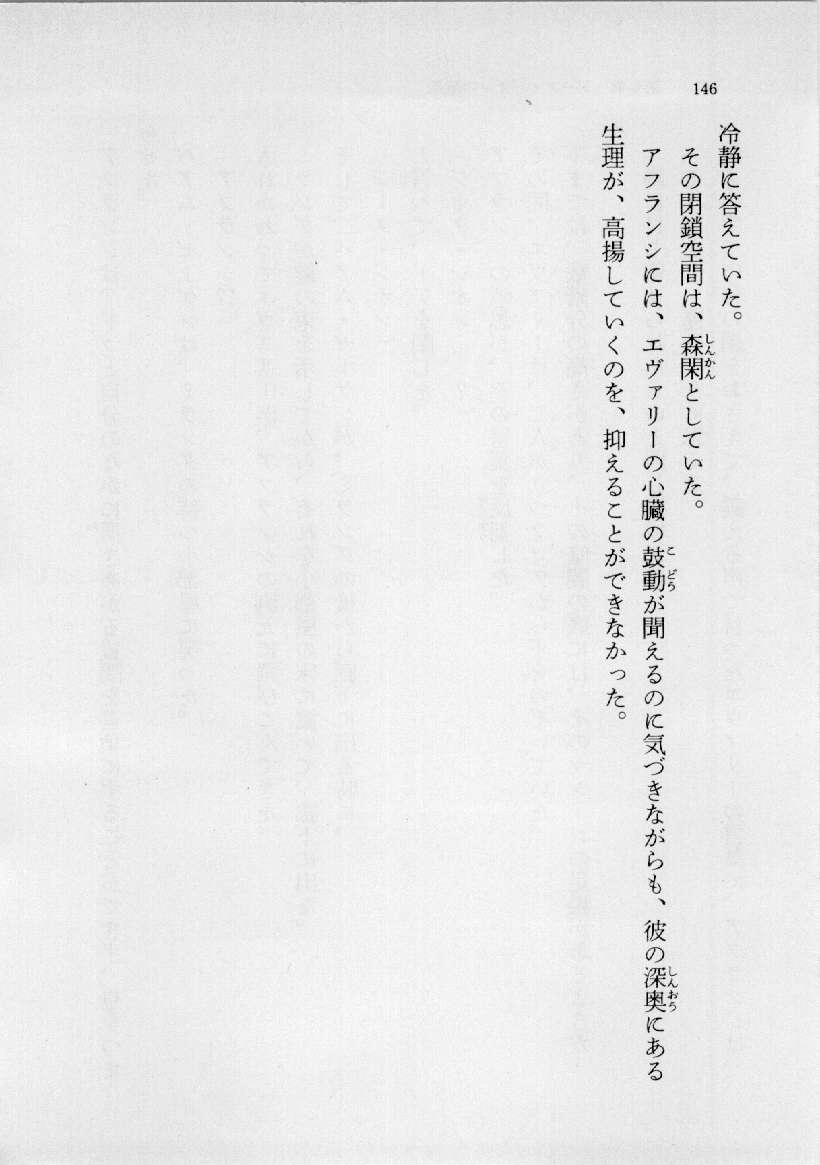 146
冷静に答えていた。
その閉鎖空間は、森閑としていた。
アフランシには、エヴァリーの心臓の鼓動が聞えるのに気づきながらも、彼の深奥にある
生理が、高揚していくのを、抑えることができなかった。